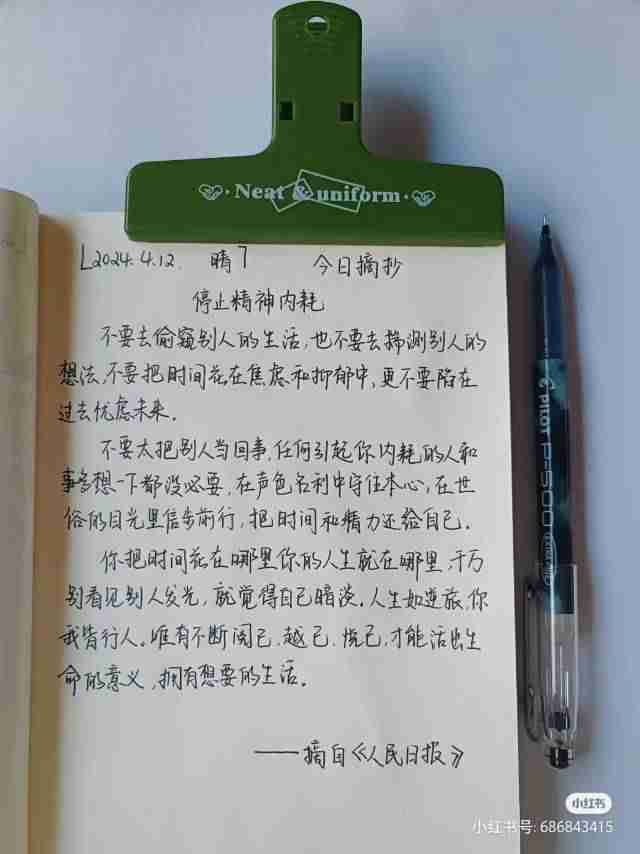 Neat & uniform
2024.4.12. 晴 今日摘抄
停止精神内耗
不要去偷窥别人的生活,也不要去揣测别人的
想法,不要把时间花在焦虑和抑郁中,更不要陷在
过去忧虑未来.
不要太把别人当回事,任何引起你内耗的人和
事多想一下都没必要,在声色名利中守住本心,在世
俗的目光里信步前行,把时间和精力还给自己.
你把时间花在哪里你的人生就在哪里,千万
别看见别人发光,就觉得自己暗淡.人生如逆旅,你
我皆行人。唯有不断阅己.越己.悦己,才能活出生
命的意义,拥有想要的生活。
——摘自《人民日报》
PILOT P-500
小红书
小红书号: 686843415